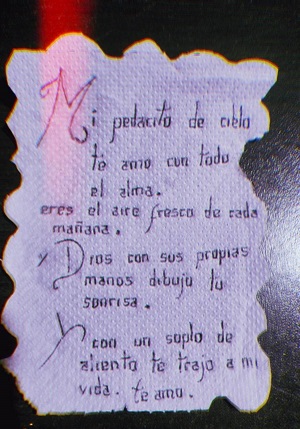 Mi pedacito de cielo
te amo con todo
el alma.
eres el aire fresco de cada
mañana.
y Dios con sus propias
manos dibujo tu
sonrisa.
Y con un soplo de
aliento te trajo a mi
vida. te amo.